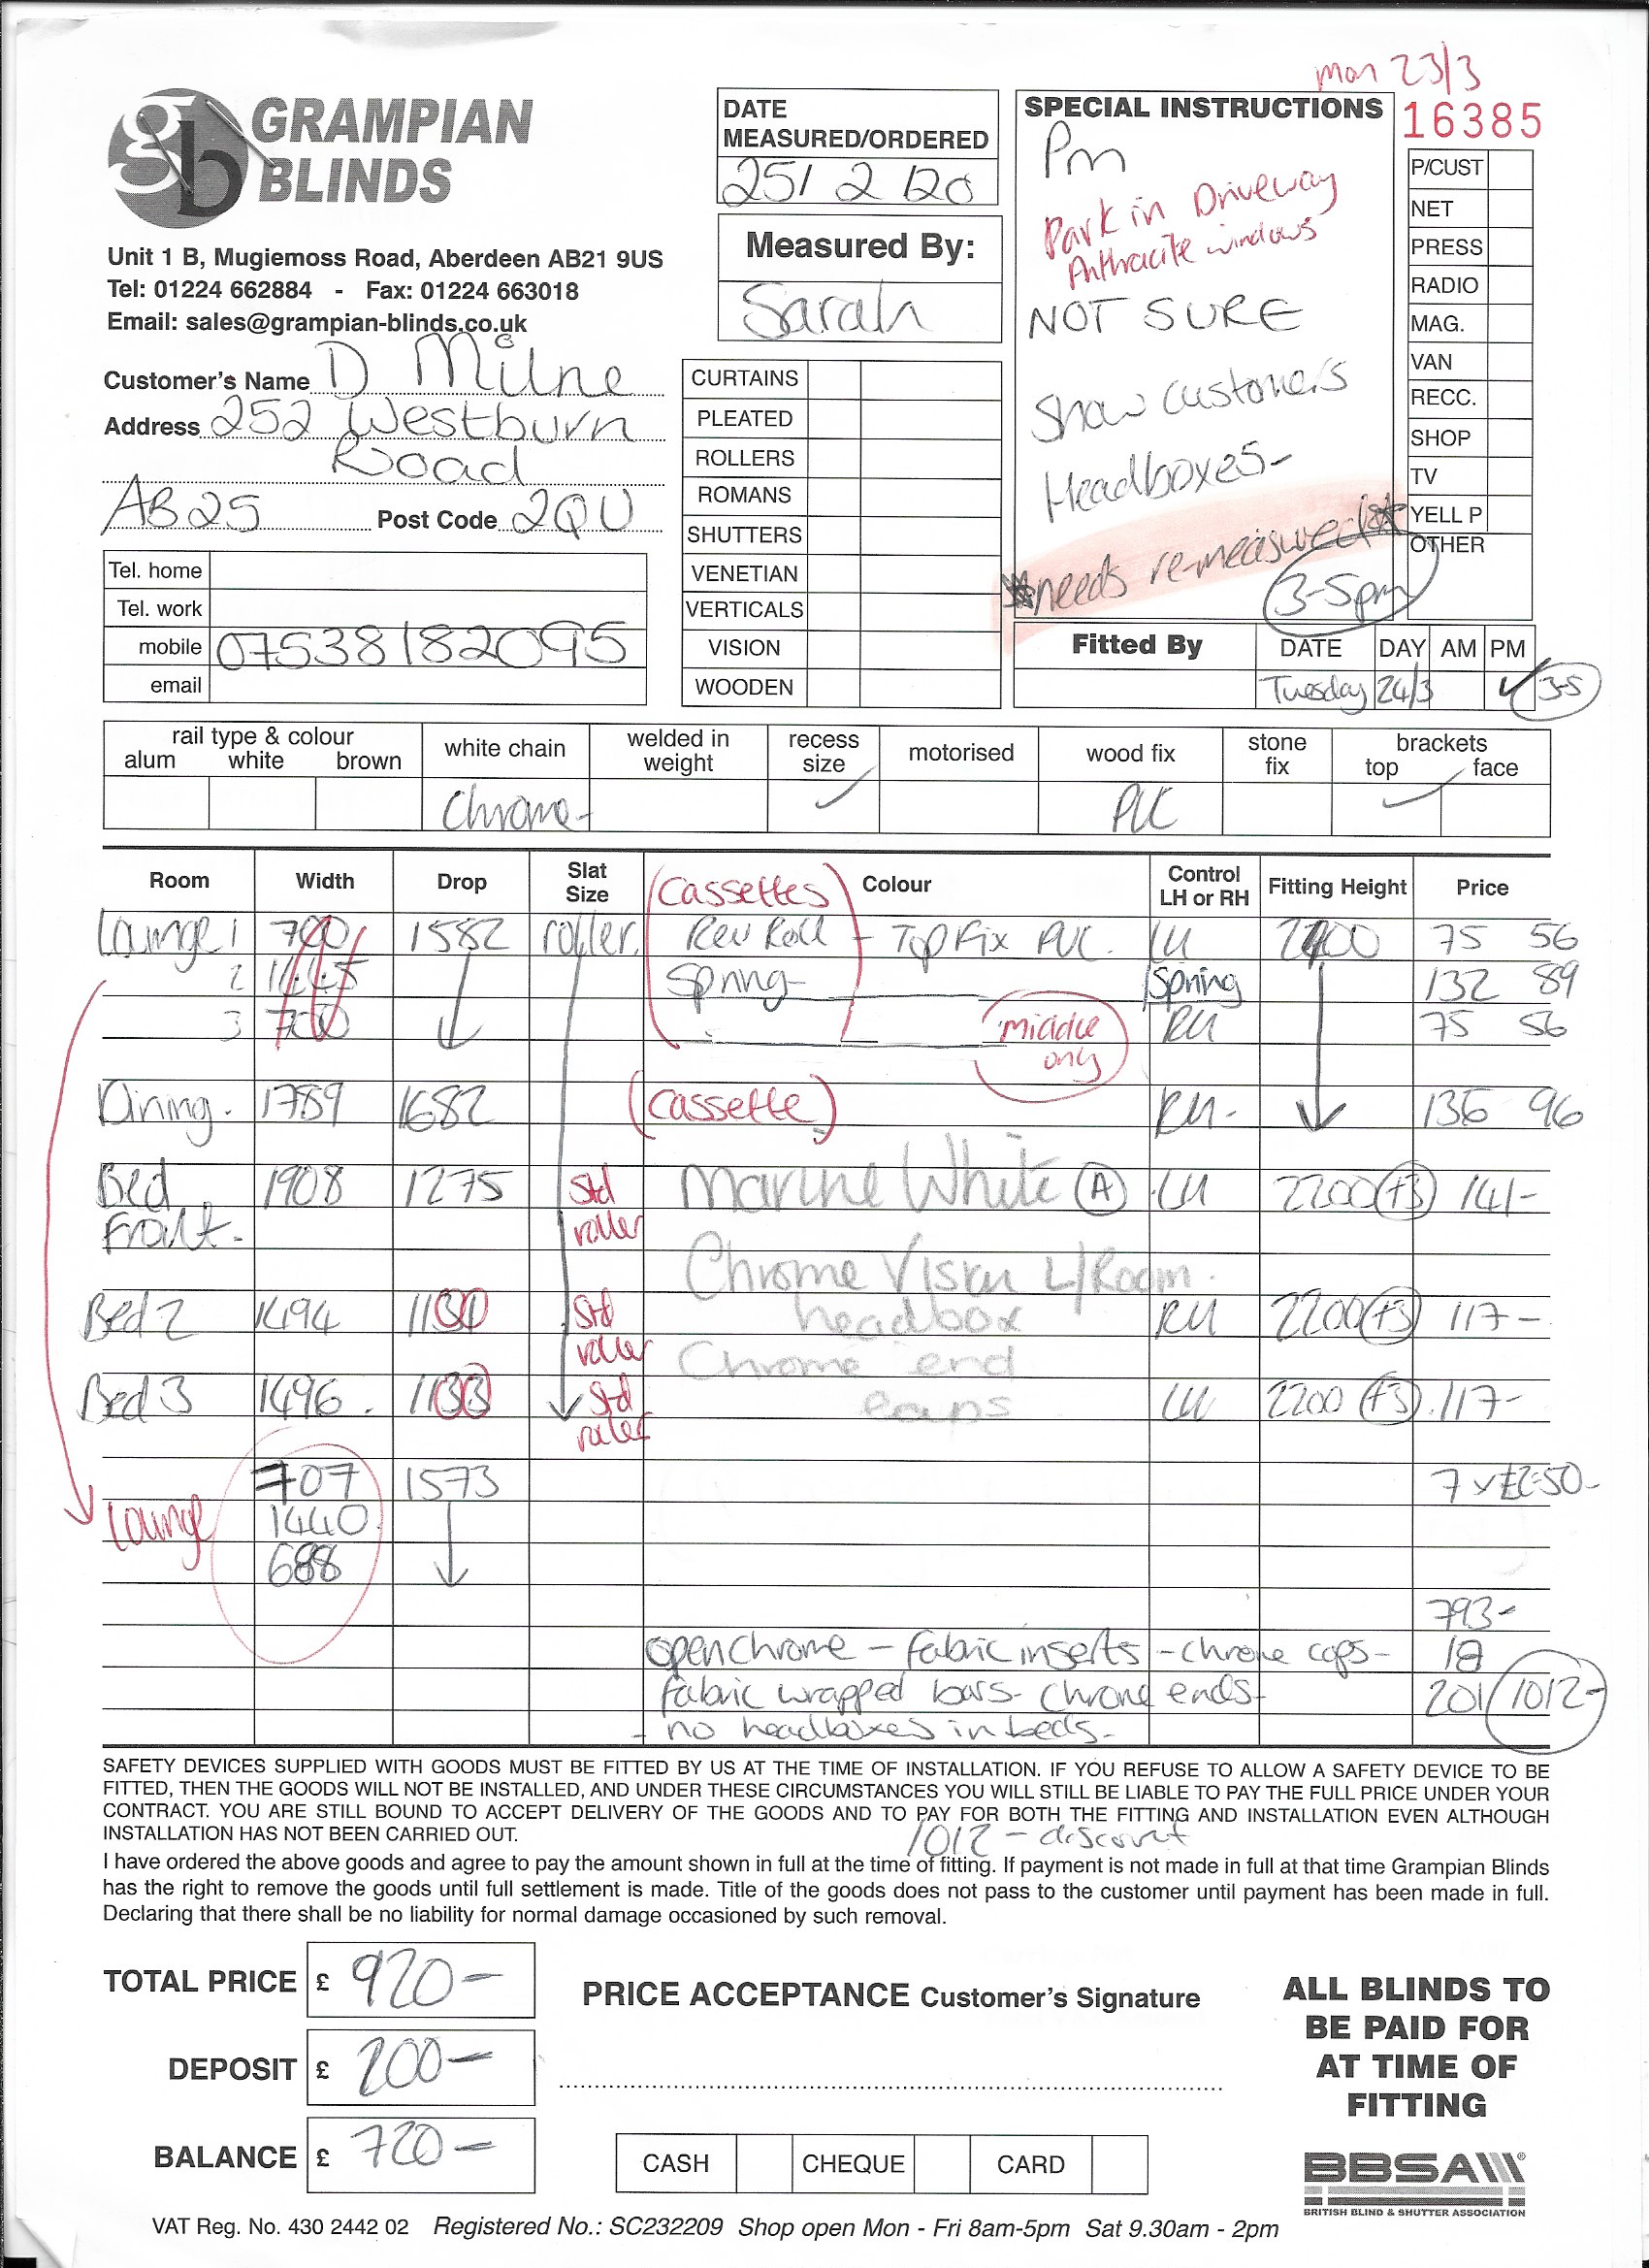 mon 23/3
GRAMPIAN
BLINDS
gb
Unit 1 B, Mugiemoss Road, Aberdeen AB21 9US
Tel: 01224 662884 - Fax: 01224 663018
Email: sales@grampian-blinds.co.uk
Customer's Name D Milne
Address 252 Westburn
Road
AB25 Post Code 2QU
Tel. home
Tel. work
mobile 07538182095
email
DATE
MEASURED/ORDERED
25/2/20
Measured By:
Sarah
CURTAINS
PLEATED
ROLLERS
ROMANS
SHUTTERS
VENETIAN
VERTICALS
VISION
WOODEN
SPECIAL INSTRUCTIONS
Pm
Park in Driveway
Anthracite windows
NOT SURE
Show customers
Headboxes-
*needs re-measured*
3-5pm
16385
P/CUST
NET
PRESS
RADIO
MAG.
VAN
RECC.
SHOP
TV
YELL P
OTHER
Fitted By DATE DAY AM PM
Tuesday 24/3 ✓ 3-5
rail type & colour
alum white brown
white chain
welded in weight
recess size
motorised
wood fix
stone fix
brackets
top face
Chrome- ✓ PVC ✓
Room Width Drop Slat Size Colour Control LH or RH Fitting Height Price
(Cassettes
Lounge 1 700 1582 roller. Rev Roll - Top Fix PVC. LH 2400 75 56
2 1445 Spring Spring 132 89
3 700 RH 75 56
middle
only
Dining. 1789 1682 (Cassette) RH- 136 96
Bed 1908 1275 Std Marine White (A) LH 2200 (+3) 141-
Front- roller
Chrome Vision L/Room.
Bed 2 1494 1130 Std headbox RH 2200 (+3) 117-
roller Chrome end
Bed 3 1496. 1133 Std caps LH 2200 (+3) 117-
roller
707 1573 7 x £2-50-
Lounge 1440
688
793-
open chrome - fabric inserts - chrome caps- 18
fabric wrapped bars- chrome ends- 201 1012-
- no headboxes in beds-
SAFETY DEVICES SUPPLIED WITH GOODS MUST BE FITTED BY US AT THE TIME OF INSTALLATION. IF YOU REFUSE TO ALLOW A SAFETY DEVICE TO BE
FITTED, THEN THE GOODS WILL NOT BE INSTALLED, AND UNDER THESE CIRCUMSTANCES YOU WILL STILL BE LIABLE TO PAY THE FULL PRICE UNDER YOUR
CONTRACT. YOU ARE STILL BOUND TO ACCEPT DELIVERY OF THE GOODS AND TO PAY FOR BOTH THE FITTING AND INSTALLATION EVEN ALTHOUGH
INSTALLATION HAS NOT BEEN CARRIED OUT.
1012 - discount
I have ordered the above goods and agree to pay the amount shown in full at the time of fitting. If payment is not made in full at that time Grampian Blinds
has the right to remove the goods until full settlement is made. Title of the goods does not pass to the customer until payment has been made in full.
Declaring that there shall be no liability for normal damage occasioned by such removal.
TOTAL PRICE £ 920-
DEPOSIT £ 200-
BALANCE £ 720-
PRICE ACCEPTANCE Customer's Signature
CASH CHEQUE CARD
ALL BLINDS TO
BE PAID FOR
AT TIME OF
FITTING
BBSA
BRITISH BLIND & SHUTTER ASSOCIATION
VAT Reg. No. 430 2442 02 Registered No.: SC232209 Shop open Mon - Fri 8am-5pm Sat 9.30am - 2pm